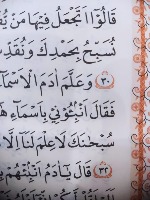 قَالُوٓا۟ أَتَجْعَلُ فِيهَا مَن
نُسَبِّحُ بِحَمْدِكَ وَنُقَدِّ
٣٠ وَعَلَّمَ ءَادَمَ ٱلْأَسْمَآ
فَقَالَ أَنۢبِـُٔونِى بِأَسْمَآءِ هَٰٓ
سُبْحَٰنَكَ لَا عِلْمَ لَنَآ إِلَّا
٣٢ قَالَ يَٰٓـَٔادَمُ أَنۢبِئْهُم